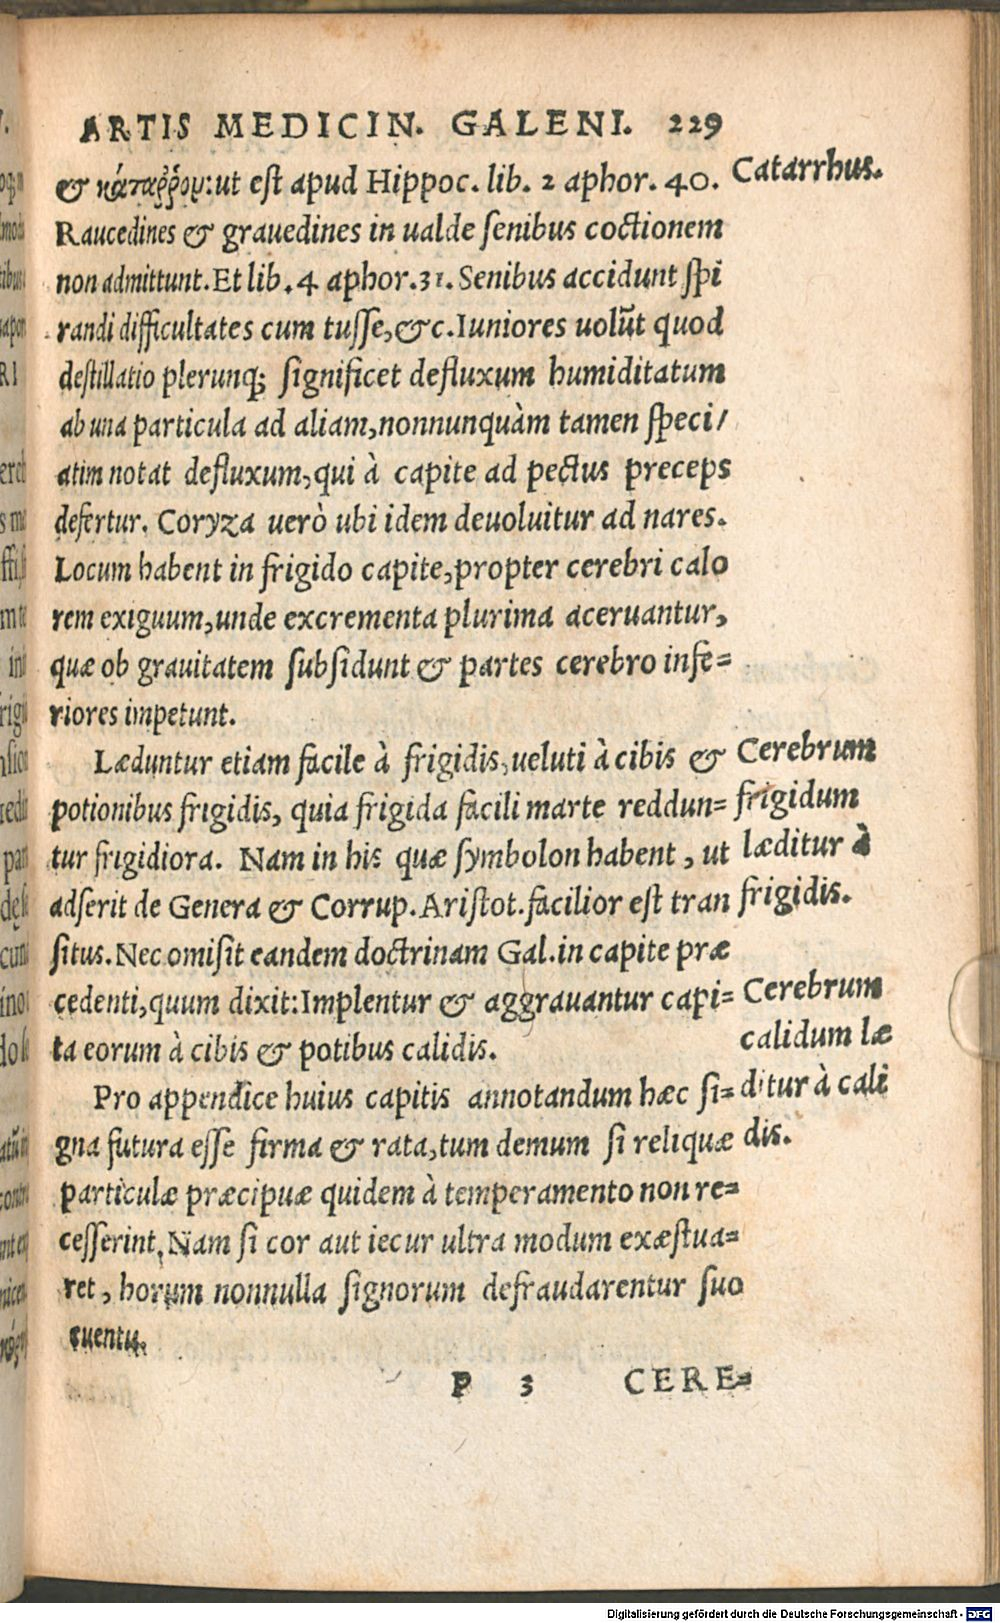 ARTIS MEDICIN. GALENI. 229
& κάταῤῥον: ut est apud Hippoc. lib. 2 aphor. 40.
Catarrhus.
Raucedines & grauedines in ualde senibus coctionem
non admittunt. Et lib. 4 aphor. 31. Senibus accidunt spi
randi difficultates cum tusse, &c. Iuniores uolũt quod
destillatio plerunq; significet defluxum humiditatum
ab una particula ad aliam, nonnunquàm tamen speci/
atim notat defluxum, qui à capite ad pectus preceps
defertur. Coryza uerò ubi idem deuoluitur ad nares.
Locum habent in frigido capite, propter cerebri calo
rem exiguum, unde excrementa plurima aceruantur,
quæ ob grauitatem subsidunt & partes cerebro infe=
riores impetunt.
Læduntur etiam facile à frigidis, ueluti à cibis &
potionibus frigidis, quia frigida facili marte reddun=
tur frigidiora. Nam in his quæ symbolon habent, ut
adserit de Genera & Corrup. Aristot. facilior est tran
situs. Nec omisit eandem doctrinam Gal. in capite præ
cedenti, quum dixit: Implentur & aggrauantur capi=
ta eorum à cibis & potibus calidis.
Cerebrum
frigidum
læditur à
frigidis.
Cerebrum
calidum læ
ditur à cali
dis.
Pro appendice huius capitis annotandum hæc si=
gna futura esse firma & rata, tum demum si reliquæ
particulæ præcipuæ quidem à temperamento non re=
cesserint, Nam si cor aut iecur ultra modum exæstua=
ret, horum nonnulla signorum defraudarentur suo
euentu.
P 3 CERE=
Digitalisierung gefördert durch die Deutsche Forschungsgemeinschaft - DFG